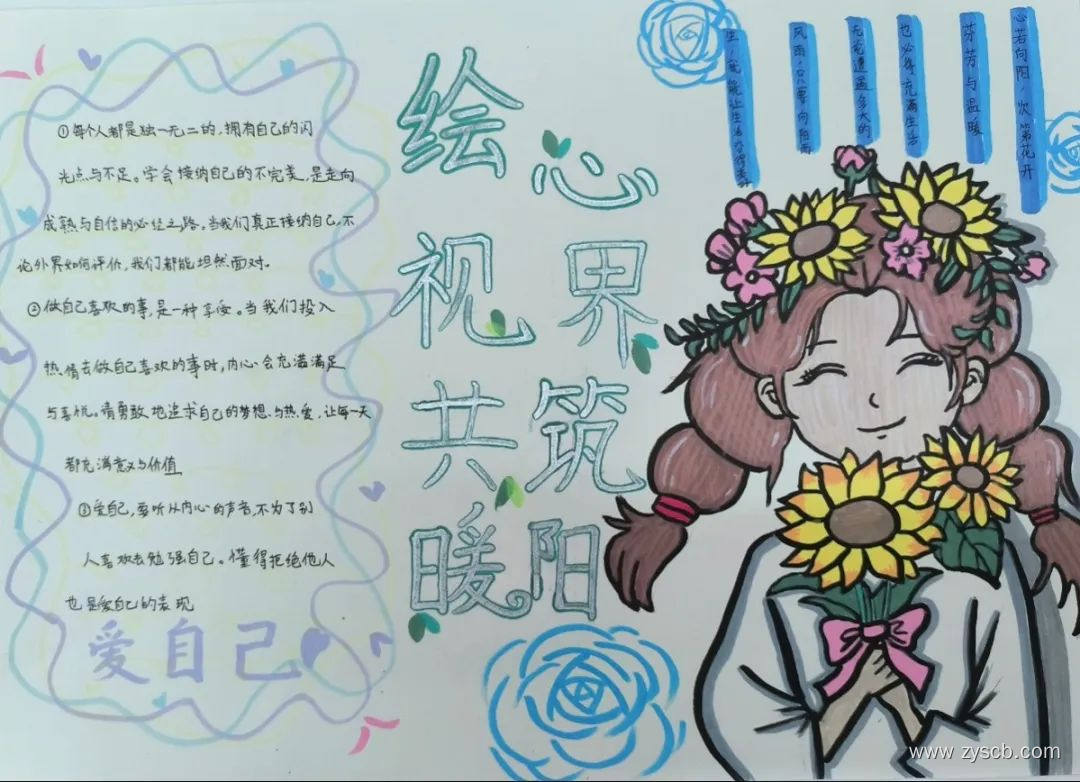 ①每个人都是独一无二的，拥有自己的闪
光点与不足。学会接纳自己的不完美，是走向
成熟与自信的必经之路。当我们真正接纳自己，不
论外界如何评价，我们都能坦然面对。
②做自己喜欢的事，是一种享受。当我们投入
热情去做自己喜欢的事时，内心会充溢满足
与喜悦。请勇敢地追求自己的梦想与热爱，让每一天
都充满意义与价值
③爱自己，要听从内心的声音，不为了别
人喜欢去勉强自己。懂得拒绝他人
也是爱自己的表现
爱自己
绘心
视界
共筑
暖阳
心若向阳，次第花开
芬芳与温暖
也必将充满生活
无论遭遇多大的
风雨，只要向阳而
生，就能让生活变得美好
www.zyscb.com